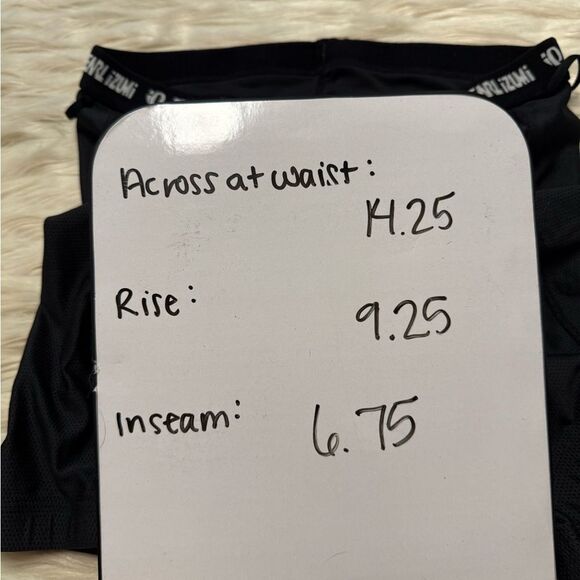 EARL iZUMi
EARL iZUMi
Across at waist:
14.25
Rise:
9.25
Inseam:
6.75